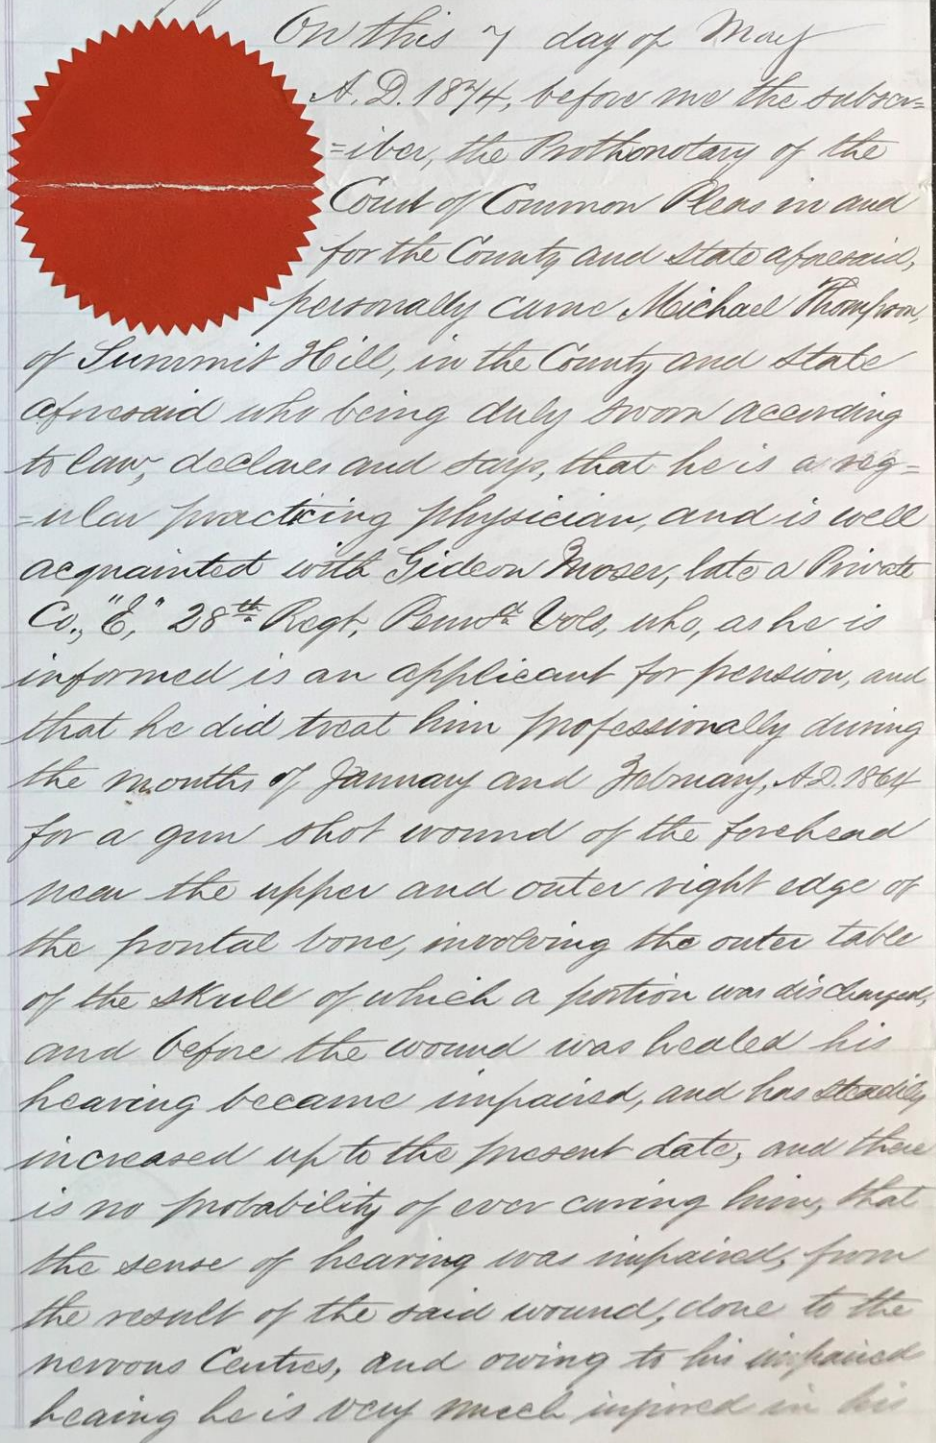 On this 7 day of May
A.D. 1874, before me the subscr=
=iber, the Prothonotary of the
Court of Common Pleas in and
for the County and State aforesaid,
personally came Michael Thompson,
of Summit Hill, in the County and State
aforesaid who being duly sworn according
to law, declares and says, that he is a reg=
=ular practicing physician, and is well
acquainted with Gideon Moser, late a Private
Co., "E," 28th Regt. Pennsa. Vols, who, as he is
informed is an applicant for pension, and
that he did treat him professionally during
the months of January and February, A.D. 1864
for a gun shot wound of the forehead
near the upper and outer right edge of
the frontal bone, involving the outer table
of the skull of which a portion was discharged,
and before the wound was healed his
hearing became impaired, and has steadily
increased up to the present date, and there
is no probability of ever curing him, that
the sense of hearing was impaired, from
the result of the said wound, done to the
nervous Centres, and owing to his impaired
heaing he is very much injured in his